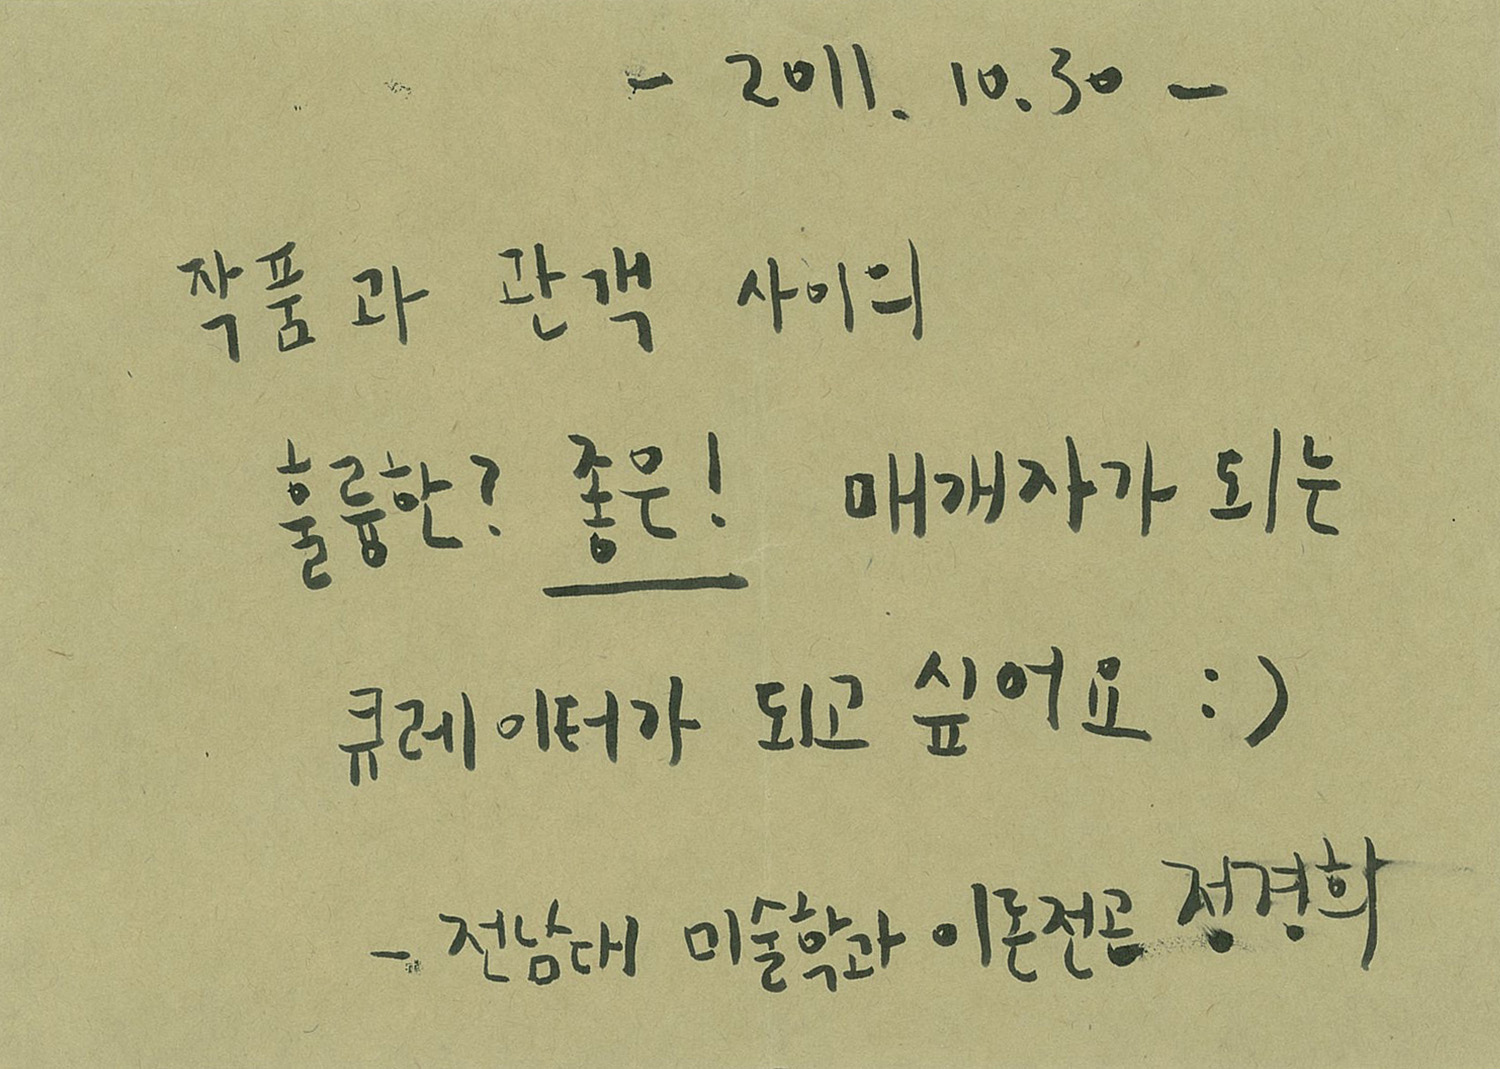 - 2011. 10.30 -
작품과 관객 사이의
훌륭한? 좋은! 매개자가 되는
큐레이터가 되고 싶어요 :)
- 전남대 미술학과 이론전공 정경희